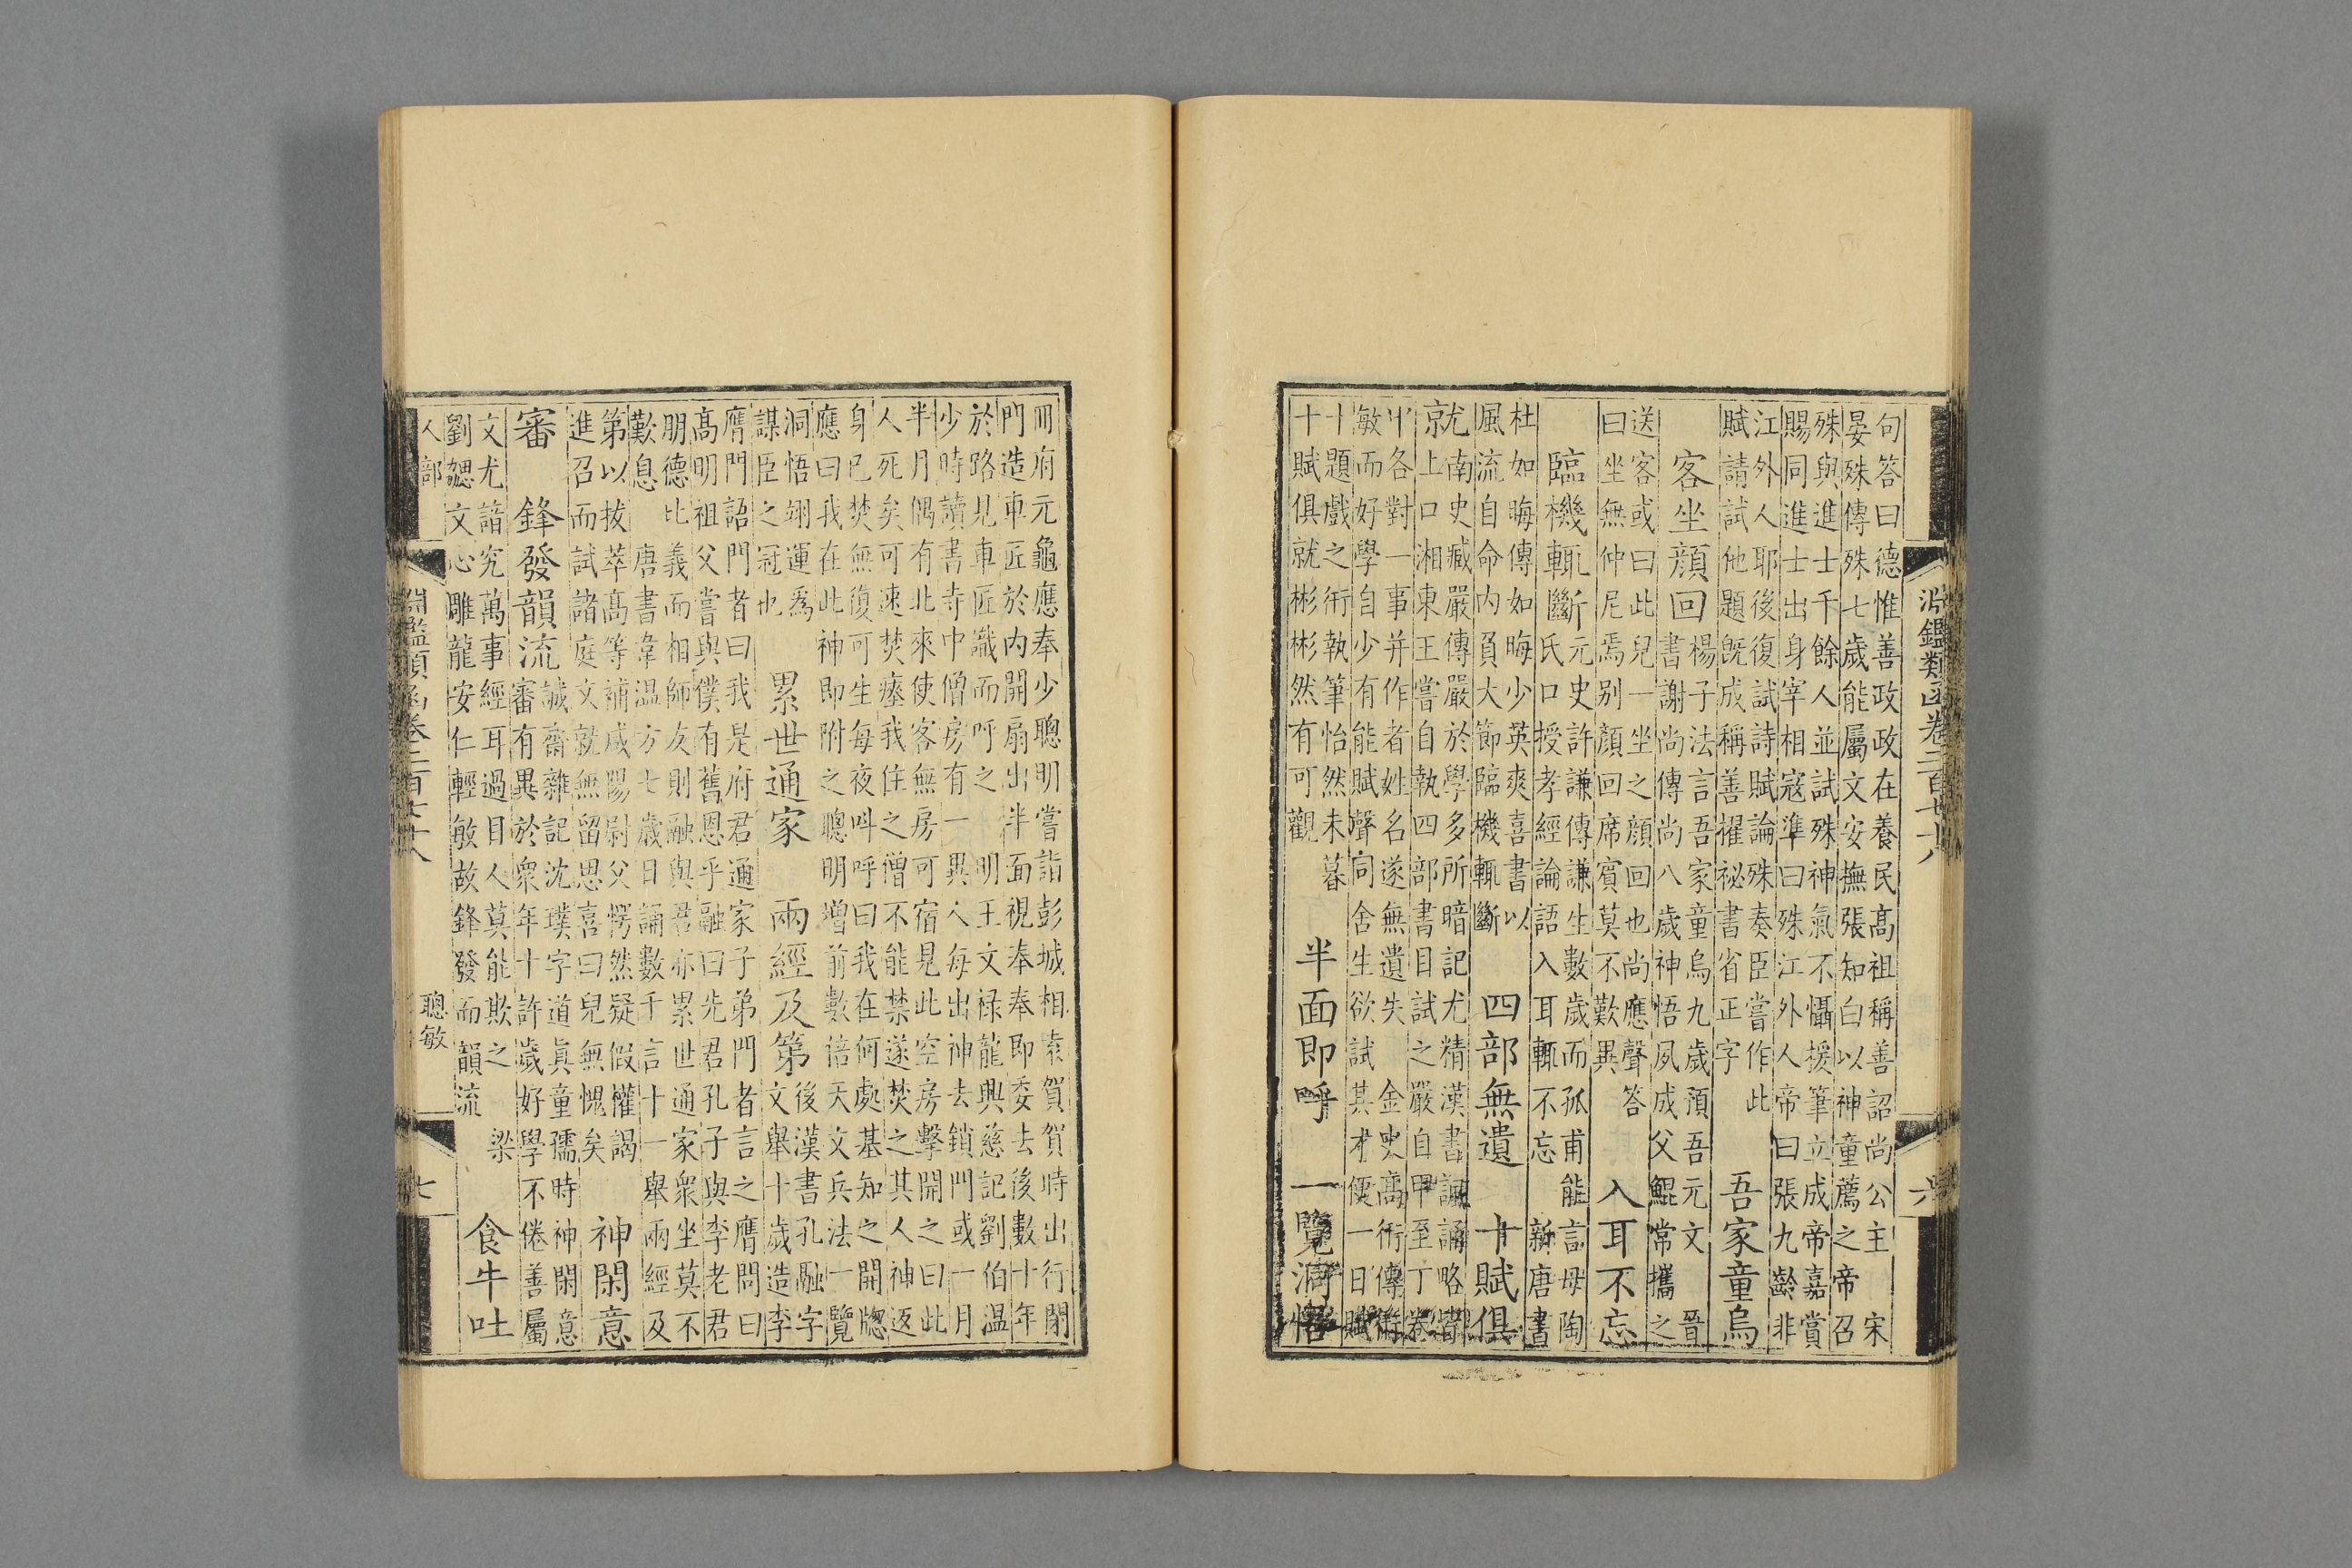 淵鑑類函卷二百七十八
六
句答曰德惟善政政在養民高祖稱善詔尚公主 宋
晏殊傳殊七歲能屬文安撫張知白以神童薦之帝召
殊與進士千餘人並試殊神氣不懾援筆立成帝嘉賞
賜同進士出身宰相寇準曰殊江外人帝曰張九齡非
江外人耶後復試詩賦論殊奏臣嘗作此
賦請試他題既成稱善擢祕書省正字
吾家童烏
客坐顔回
楊子法言吾家童烏九歲預吾元文 晉
書謝尚傳尚八歲神悟夙成父鯤常攜之
送客或曰此兒一坐之顔回也尚應聲答
曰坐無仲尼焉别顔回席賓莫不歎異
入耳不忘
臨機輒斷
元史許謙傳謙生數歲而孤甫能言母陶
氏口授孝經論語入耳輒不忘 新唐書
杜如晦傳如晦少英爽喜書以
風流自命内負大節臨機輒斷
四部無遺 十賦俱
就
南史臧嚴傳嚴於學多所暗記尤精漢書諷誦略皆
上口湘東王嘗自執四部書目試之嚴自甲至丁卷
中各對一事并作者姓名遂無遺失 金史高衎傳衎
敏而好學自少有能賦聲同舍生欲試其才便一日賦
十題戲之衎執筆怡然未暮
十賦俱就彬彬然有可觀
半面即呼 一覽洞悟
冊府元龜應奉少聰明嘗詣彭城相袁賀賀時出行閉
門造車匠於内開扇出半面視奉奉即委去後數十年
於路見車匠識而呼之 明王文禄龍興慈記劉伯温
少時讀書寺中僧房有一異人每出神去鎖門或一月
半月偶有北來使客無房可宿見此空房擊開之曰此
人死矣可速焚瘞我住之僧不能禁遂焚之其人神返
身已焚無復可生每夜呌呼曰我在何處基知之開牕
應曰我在此神即附之聰明增前數倍天文兵法一覽
洞悟翊運爲
謀臣之冠也
累世通家 兩經及第
後漢書孔融字
文舉十歲造李
膺門語門者曰我是府君通家子弟門者言之膺問曰
高明祖父嘗與僕有舊恩乎融曰先君孔子與李老君
朋德比義而相師友則融與君亦累世通家衆坐莫不
歎息 唐書韋温方七歲日誦數千言十一舉兩經及
第以拔萃高等補咸陽尉父愕然疑假權謁
進召而試諸庭文就無留思喜曰兒無愧矣
神閑意
審 鋒發韻流
誠齋雜記沈璞字道真童孺時神閑意
審有異於衆年十許歲好學不倦善屬
文尤諳究萬事經耳過目人莫能欺之 梁
劉勰文心雕龍安仁輕敏故鋒發而韻流
食牛吐
人部
淵鑑類函卷二百七十八
聰敏
七